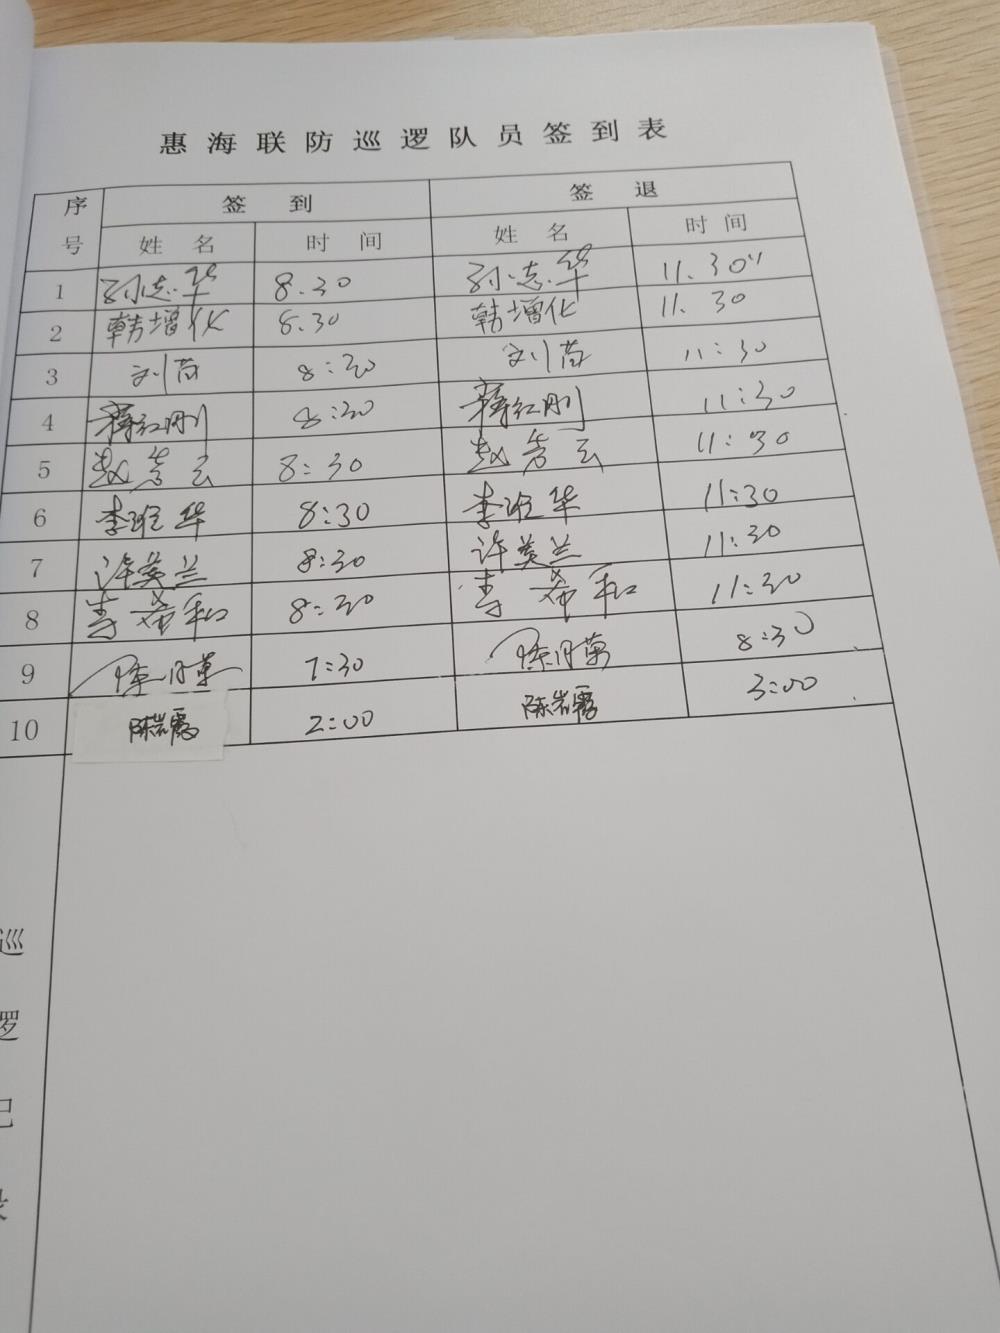 惠海联防巡逻队员签到表
序号 签到 签退
姓名 时间 姓名 时间
1 孙志华 8.30 孙志华 11.30
2 韩增化 8.30 韩增化 11.30
3 刘芮 8:30 刘芮 11:30
4 蒋红刚 8:30 蒋红刚 11:30
5 赵芳云 8:30 赵芳云 11:30
6 李 华 8:30 李 华 11:30
7 许英兰 8:30 许英兰 11:30
8 李希和 8:30 李希和 11:30
9 陈月 7:30 陈月 8:30
10 陈岩霞 2:00 陈岩霞 3:00
巡
逻
记
录